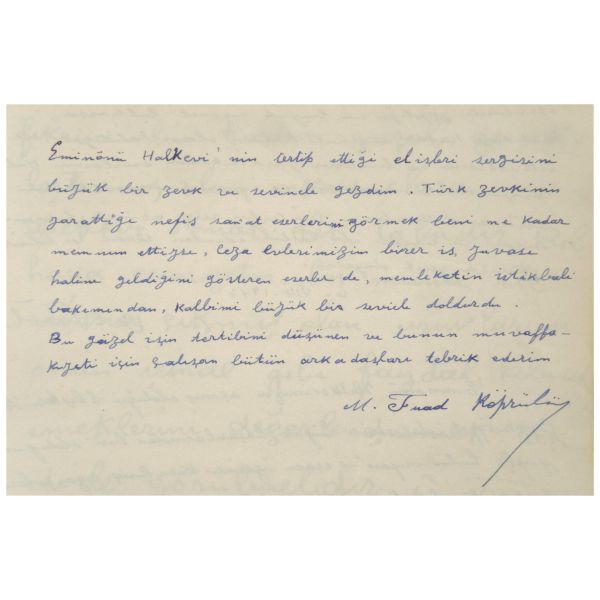 Eminönü Halkevi'nin tertip ettiği el işleri sergisini
büyük bir zevk ve sevinçle gezdim. Türk zevkinin
yarattığı nefis san'at eserlerini görmek beni ne kadar
memnun ettiyse, Ceza Evlerimizin birer iş yuvası
haline geldiğini gösteren eserler de, memleketin istikbali
bakımından, kalbimi büyük bir sevinçle doldurdu.
Bu güzel işin tertibini düşünen ve bunun muvaffa-
kıyeti için çalışan bütün arkadaşları tebrik ederim
M. Fuad Köprülü